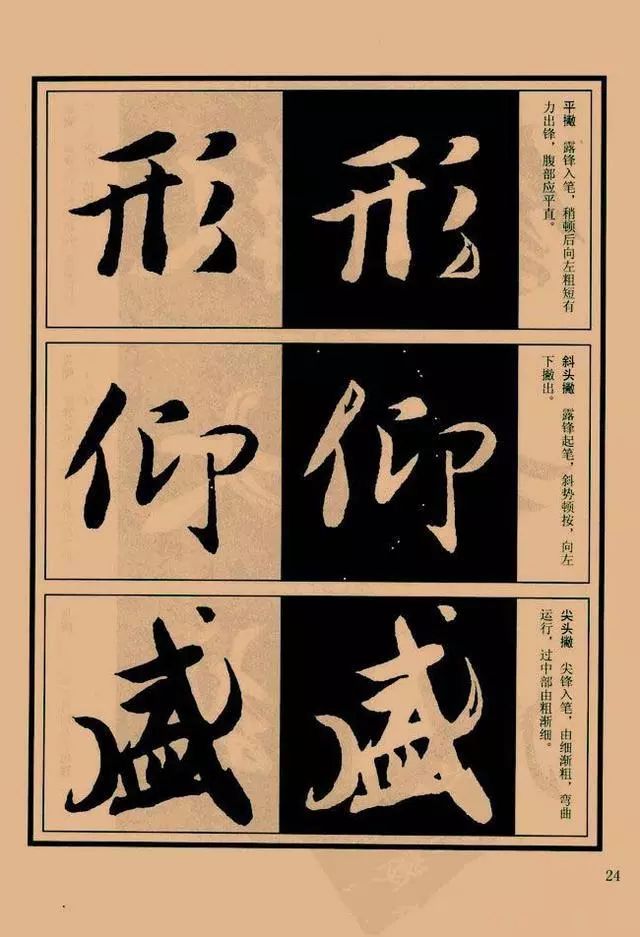 平撇 露锋入笔，稍顿后向左粗短有
力出锋，腹部应平直。
形 形
斜头撇 露锋起笔，斜势顿按，向左
下撇出。
仰 仰
尖头撇 尖锋入笔，由细渐粗，弯曲
运行，过中部由粗渐细。
盛 盛
24